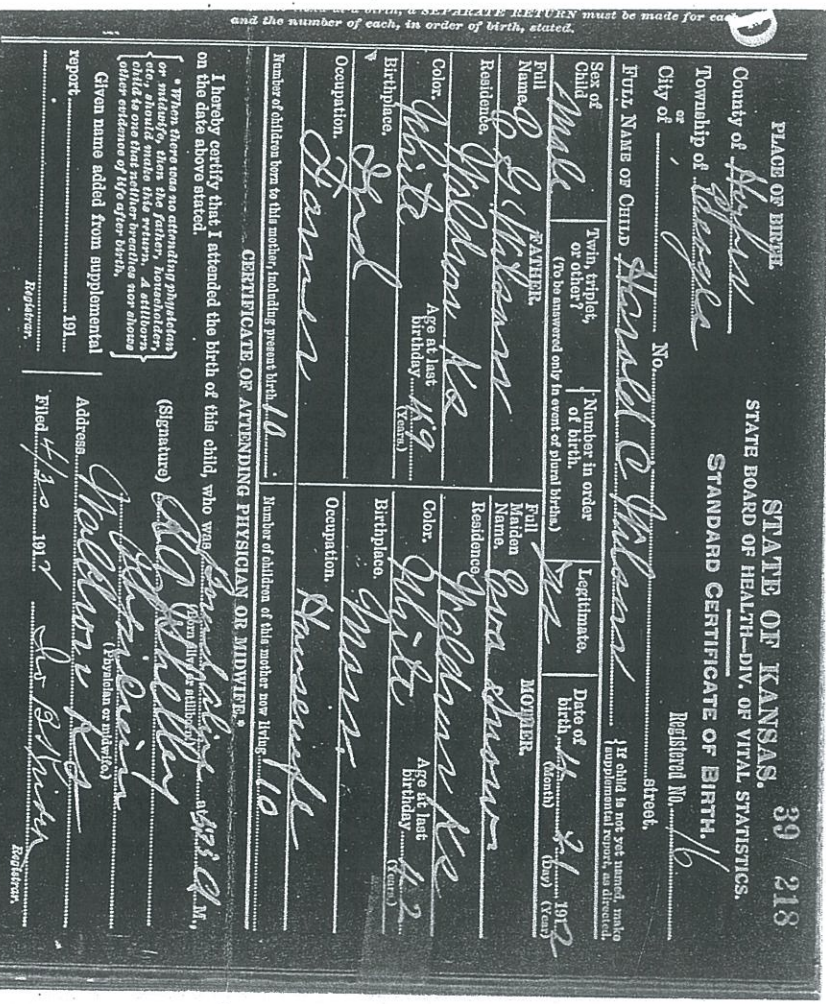 a SEPARATE RETURN must be made for each
and the number of each, in order of birth, stated.
39 218
STATE OF KANSAS.
STATE BOARD OF HEALTH—DIV. OF VITAL STATISTICS.
STANDARD CERTIFICATE OF BIRTH.
PLACE OF BIRTH
County of Harper
Township of
or
City of
Registered No. 16
No. street.
FULL NAME OF CHILD Harold C
{If child is not yet named, make supplemental report, as directed.
Sex of Child Male
Twin, triplet, or other?
{Number in order of birth.
(To be answered only in event of plural births.)
Legitimate. Yes
Date of birth 4 21 1912
(Month) (Day) (Year)
FATHER.
Full Name. C G
Residence. Waldron Ks
Color. White
Age at last birthday 49
(Years.)
Birthplace. Ind
Occupation. Farmer
MOTHER.
Full Maiden Name. Eva Snow
Residence. Waldron Ks
Color. White
Age at last birthday 42
(Years.)
Birthplace. Mass.
Occupation. Housewife
Number of children born to this mother, including present birth 10
Number of children of this mother now living 10
CERTIFICATE OF ATTENDING PHYSICIAN OR MIDWIFE.*
I hereby certify that I attended the birth of this child, who was Born alive at A M.,
(Born alive or stillborn)
on the date above stated.
*When there was no attending physician
or midwife, then the father, householder,
etc., should make this return. A stillborn
child is one that neither breathes nor shows
other evidence of life after birth.
(Signature) Shelley
Physician
(Physician or midwife.)
Given name added from supplemental
report 191
Registrar.
Address Waldron Ks
Filed 4/30 1912
Registrar.